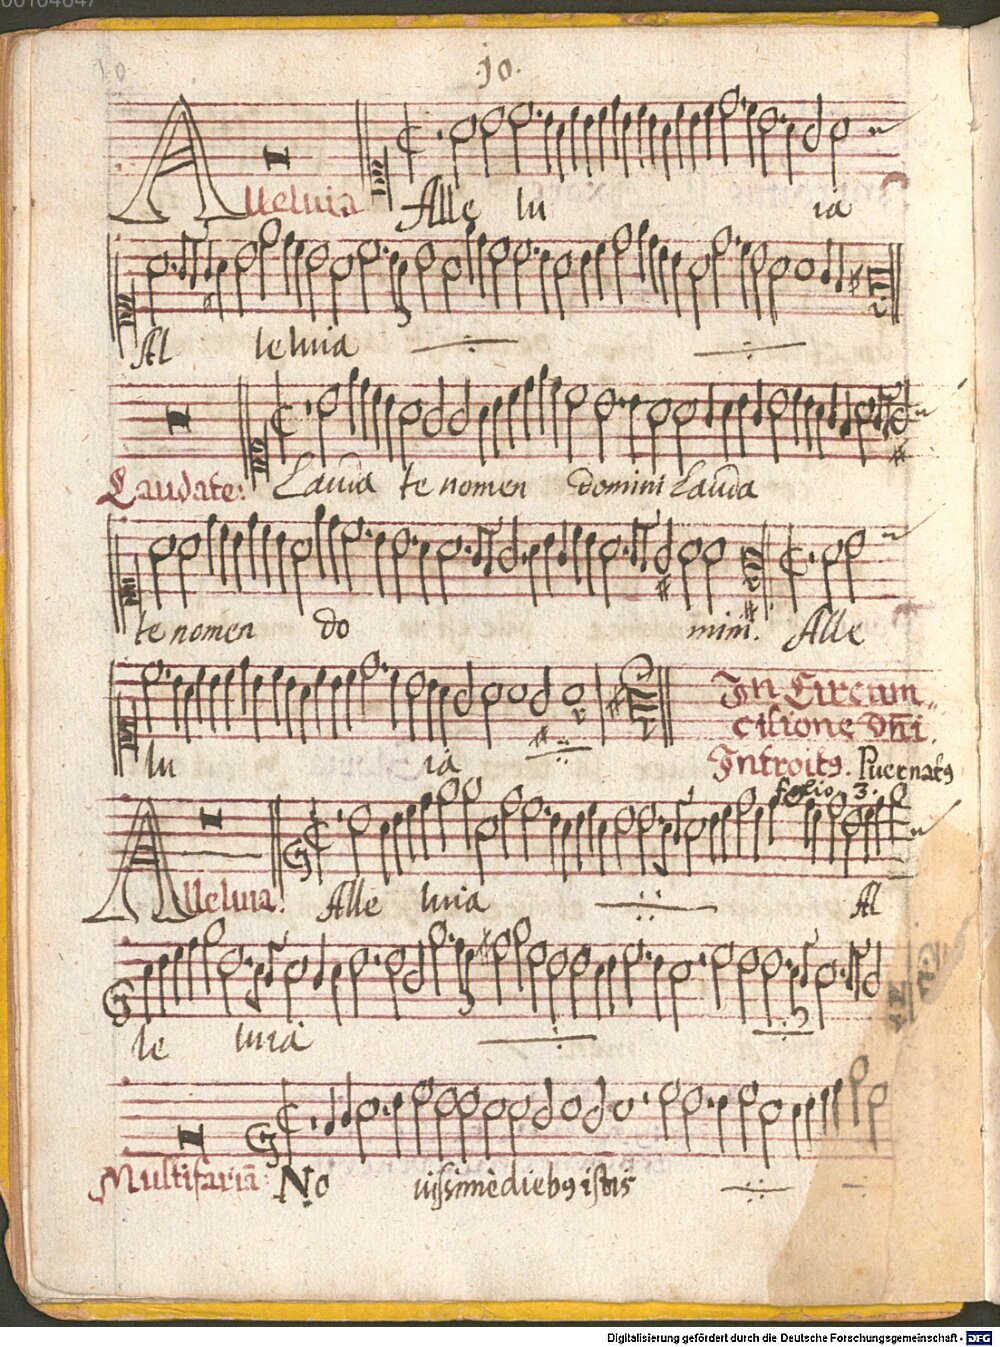 00104847
10
.10.
Alleluia Alle lu ia
Al leluia
Laudate: Lauda te nomen domini Lauda
te nomen do mini. Alle
lu ia
In Circum„
cisione dñi.
Introitꝰ. Puer natꝰ
folio. 3.
Alleluia. Alle luia Al
le luia
Multifariã: No uissimè diebꝰ istis
Digitalisierung gefördert durch die Deutsche Forschungsgemeinschaft - DFG